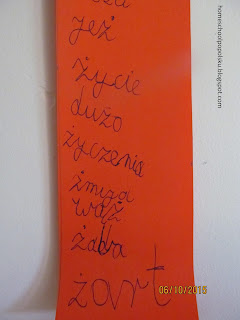 jeż
życie
dużo
życzenia
żmija
wąż
żaba
żart
06/10/2015
homeschoolpopolsku.blogspot.com